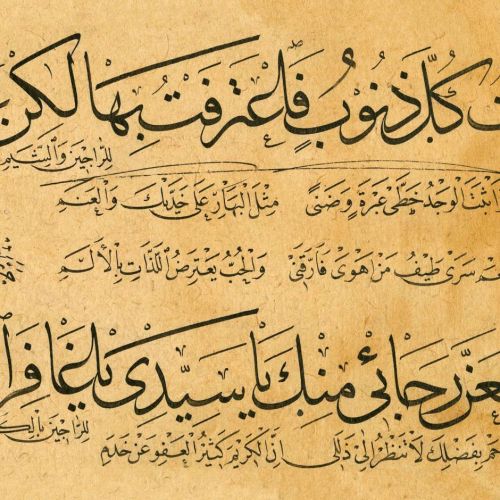 كُلَّ ذَنُوبٍ فَاعْتَرَفْتُ بِهَا لكِنْ
للرَّاجِينَ وَالشِّيَمِ
اثبتَ الوَجْدُ خَطَّىْ عَبْرَةٍ وَضَنًى مِثْلَ الْبَهَارِ عَلَى خَدَّيْكَ وَالْعَنَمِ
سَرَى طَيْفُ مَنْ اَهْوَى فَارَّقَنِي وَالْحُبُّ يَعْتَرِضُ اللَّذَّاتِ بِالْأَلَمِ
رَجَائِي مِنْكَ يَا سَيِّدِي يَا
للرَّاجِينَ
بِفَضْلِكَ لَا تَنْظُرْ اِلَى ذَلَلِي اِنَّ الْكَرِيمَ كَثِيرُ الْعَفْوِ عَنْ خَدَمِ